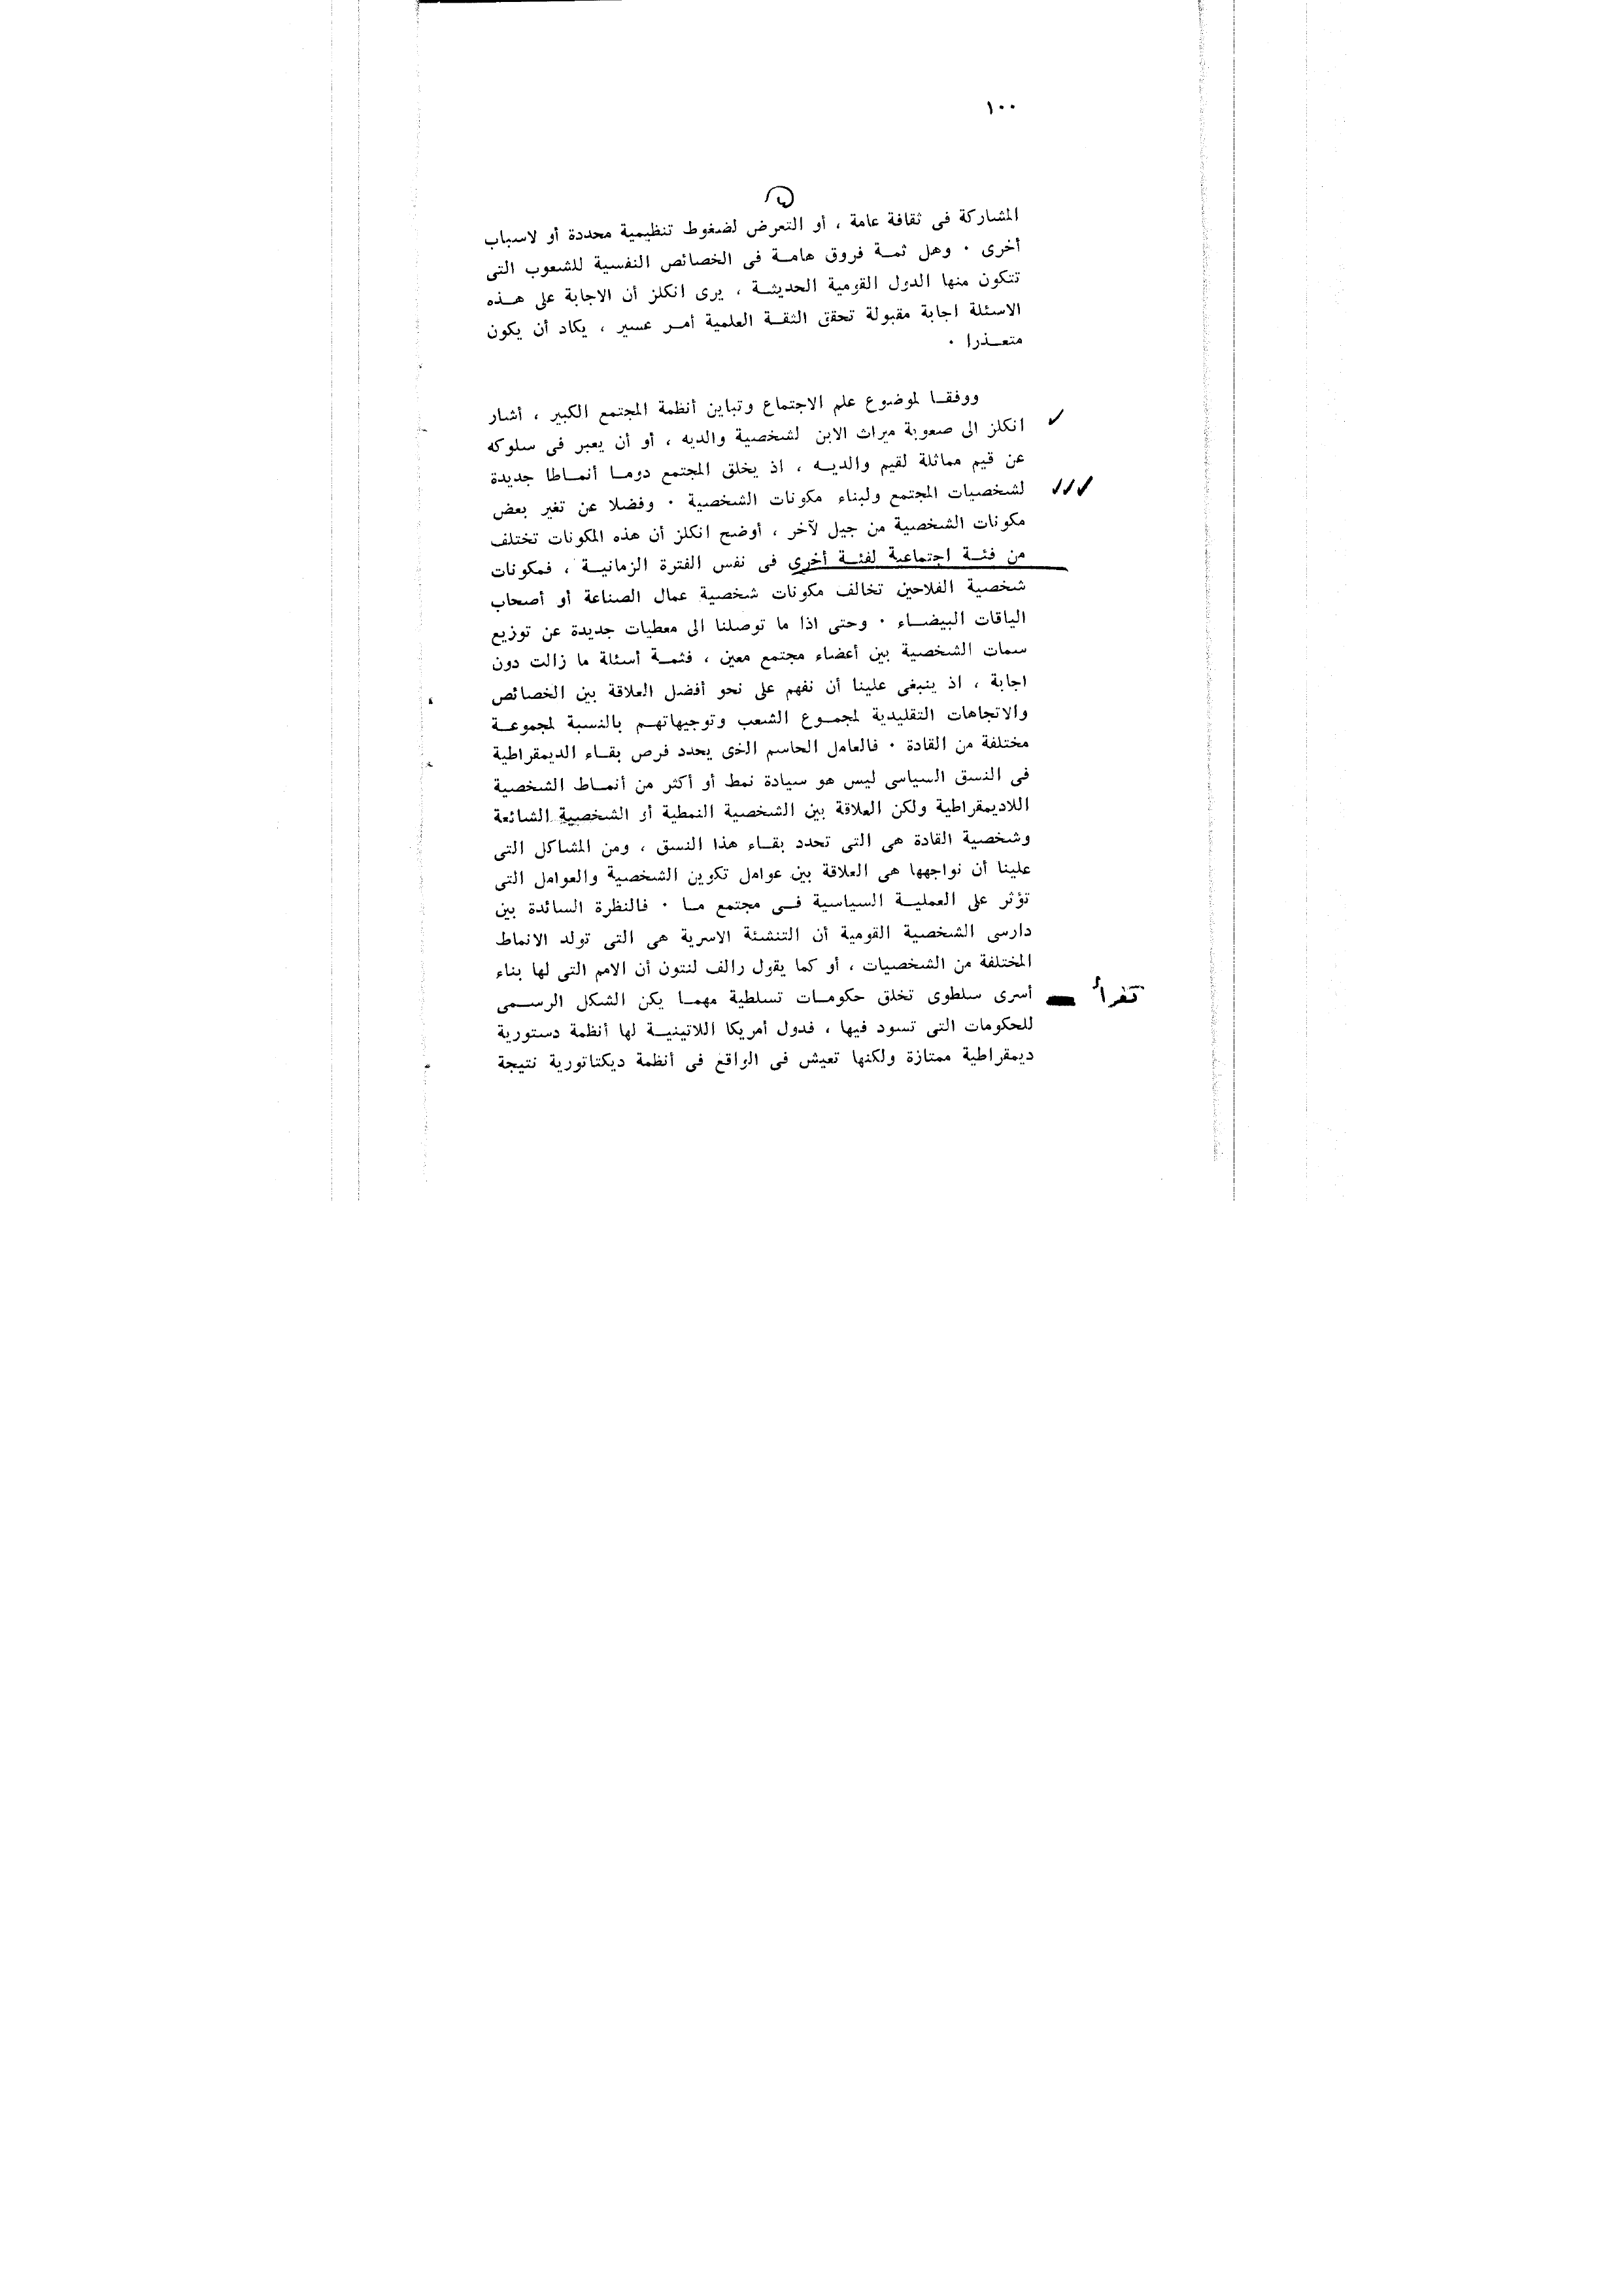 ١٠٠
المشاركة فى ثقافة عامة ، أو التعرض لضغوط تنظيمية محددة أو لاسباب
أخرى . وهل ثمـة فروق هامـة فى الخصائص النفسية للشعوب التى
تتكون منها الدول القومية الحديثـة ، يرى انكلز أن الاجابة على هـذه
الاسئلة اجابة مقبولة تحقق الثقـة العلمية أمـر عسير ، يكاد أن يكون
متعـذرا .
ووفقـا لموضوع علم الاجتماع وتباين أنظمة المجتمع الكبير ، أشار
انكلز الى صعوبة ميراث الابن لشخصية والديه ، أو أن يعبر فى سلوكه
عن قيم مماثلة لقيم والديـه ، اذ يخلق المجتمع دومـا أنمـاطا جديدة
لشخصيات المجتمع ولبناء مكونات الشخصية . وفضلا عن تغير بعض
مكونات الشخصية من جيل لآخر ، أوضح انكلز أن هذه المكونات تختلف
من فئـة اجتماعية لفئـة أخرى فى نفس الفترة الزمانيـة ، فمكونات
شخصية الفلاحين تخالف مكونات شخصية عمال الصناعة أو أصحاب
الياقات البيضـاء . وحتى اذا ما توصلنا الى معطيات جديدة عن توزيع
سمات الشخصية بين أعضاء مجتمع معين ، فثمـة أسئلة ما زالت دون
اجابة ، اذ ينبغى علينا أن نفهم على نحو أفضل العلاقة بين الخصائص
والاتجاهات التقليدية لمجمـوع الشعب وتوجيهاتهـم بالنسبة لمجموعـة
مختلفة من القادة . فالعامل الحاسم الذى يحدد فرص بقـاء الديمقراطية
فى النسق السياسى ليس هو سيادة نمط أو أكثر من أنمـاط الشخصية
اللاديمقراطية ولكن العلاقة بين الشخصية النمطية أو الشخصية الشائعة
وشخصية القادة هى التى تحدد بقـاء هذا النسق ، ومن المشاكل التى
علينا أن نواجهها هى العلاقة بين عوامل تكوين الشخصية والعوامل التى
تؤثر على العمليـة السياسية فـى مجتمع مـا . فالنظرة السائدة بين
دارسى الشخصية القومية أن التنشئة الاسرية هى التى تولد الانماط
المختلفة من الشخصيات ، أو كما يقول رالف لنتون أن الامم التى لها بناء
أسرى سلطوى تخلق حكومـات تسلطية مهمـا يكن الشكل الرسـمى
للحكومات التى تسود فيها ، فدول أمريكا اللاتينيـة لها أنظمة دستورية
ديمقراطية ممتازة ولكنها تعيش فى الواقع فى أنظمة ديكتاتورية نتيجة